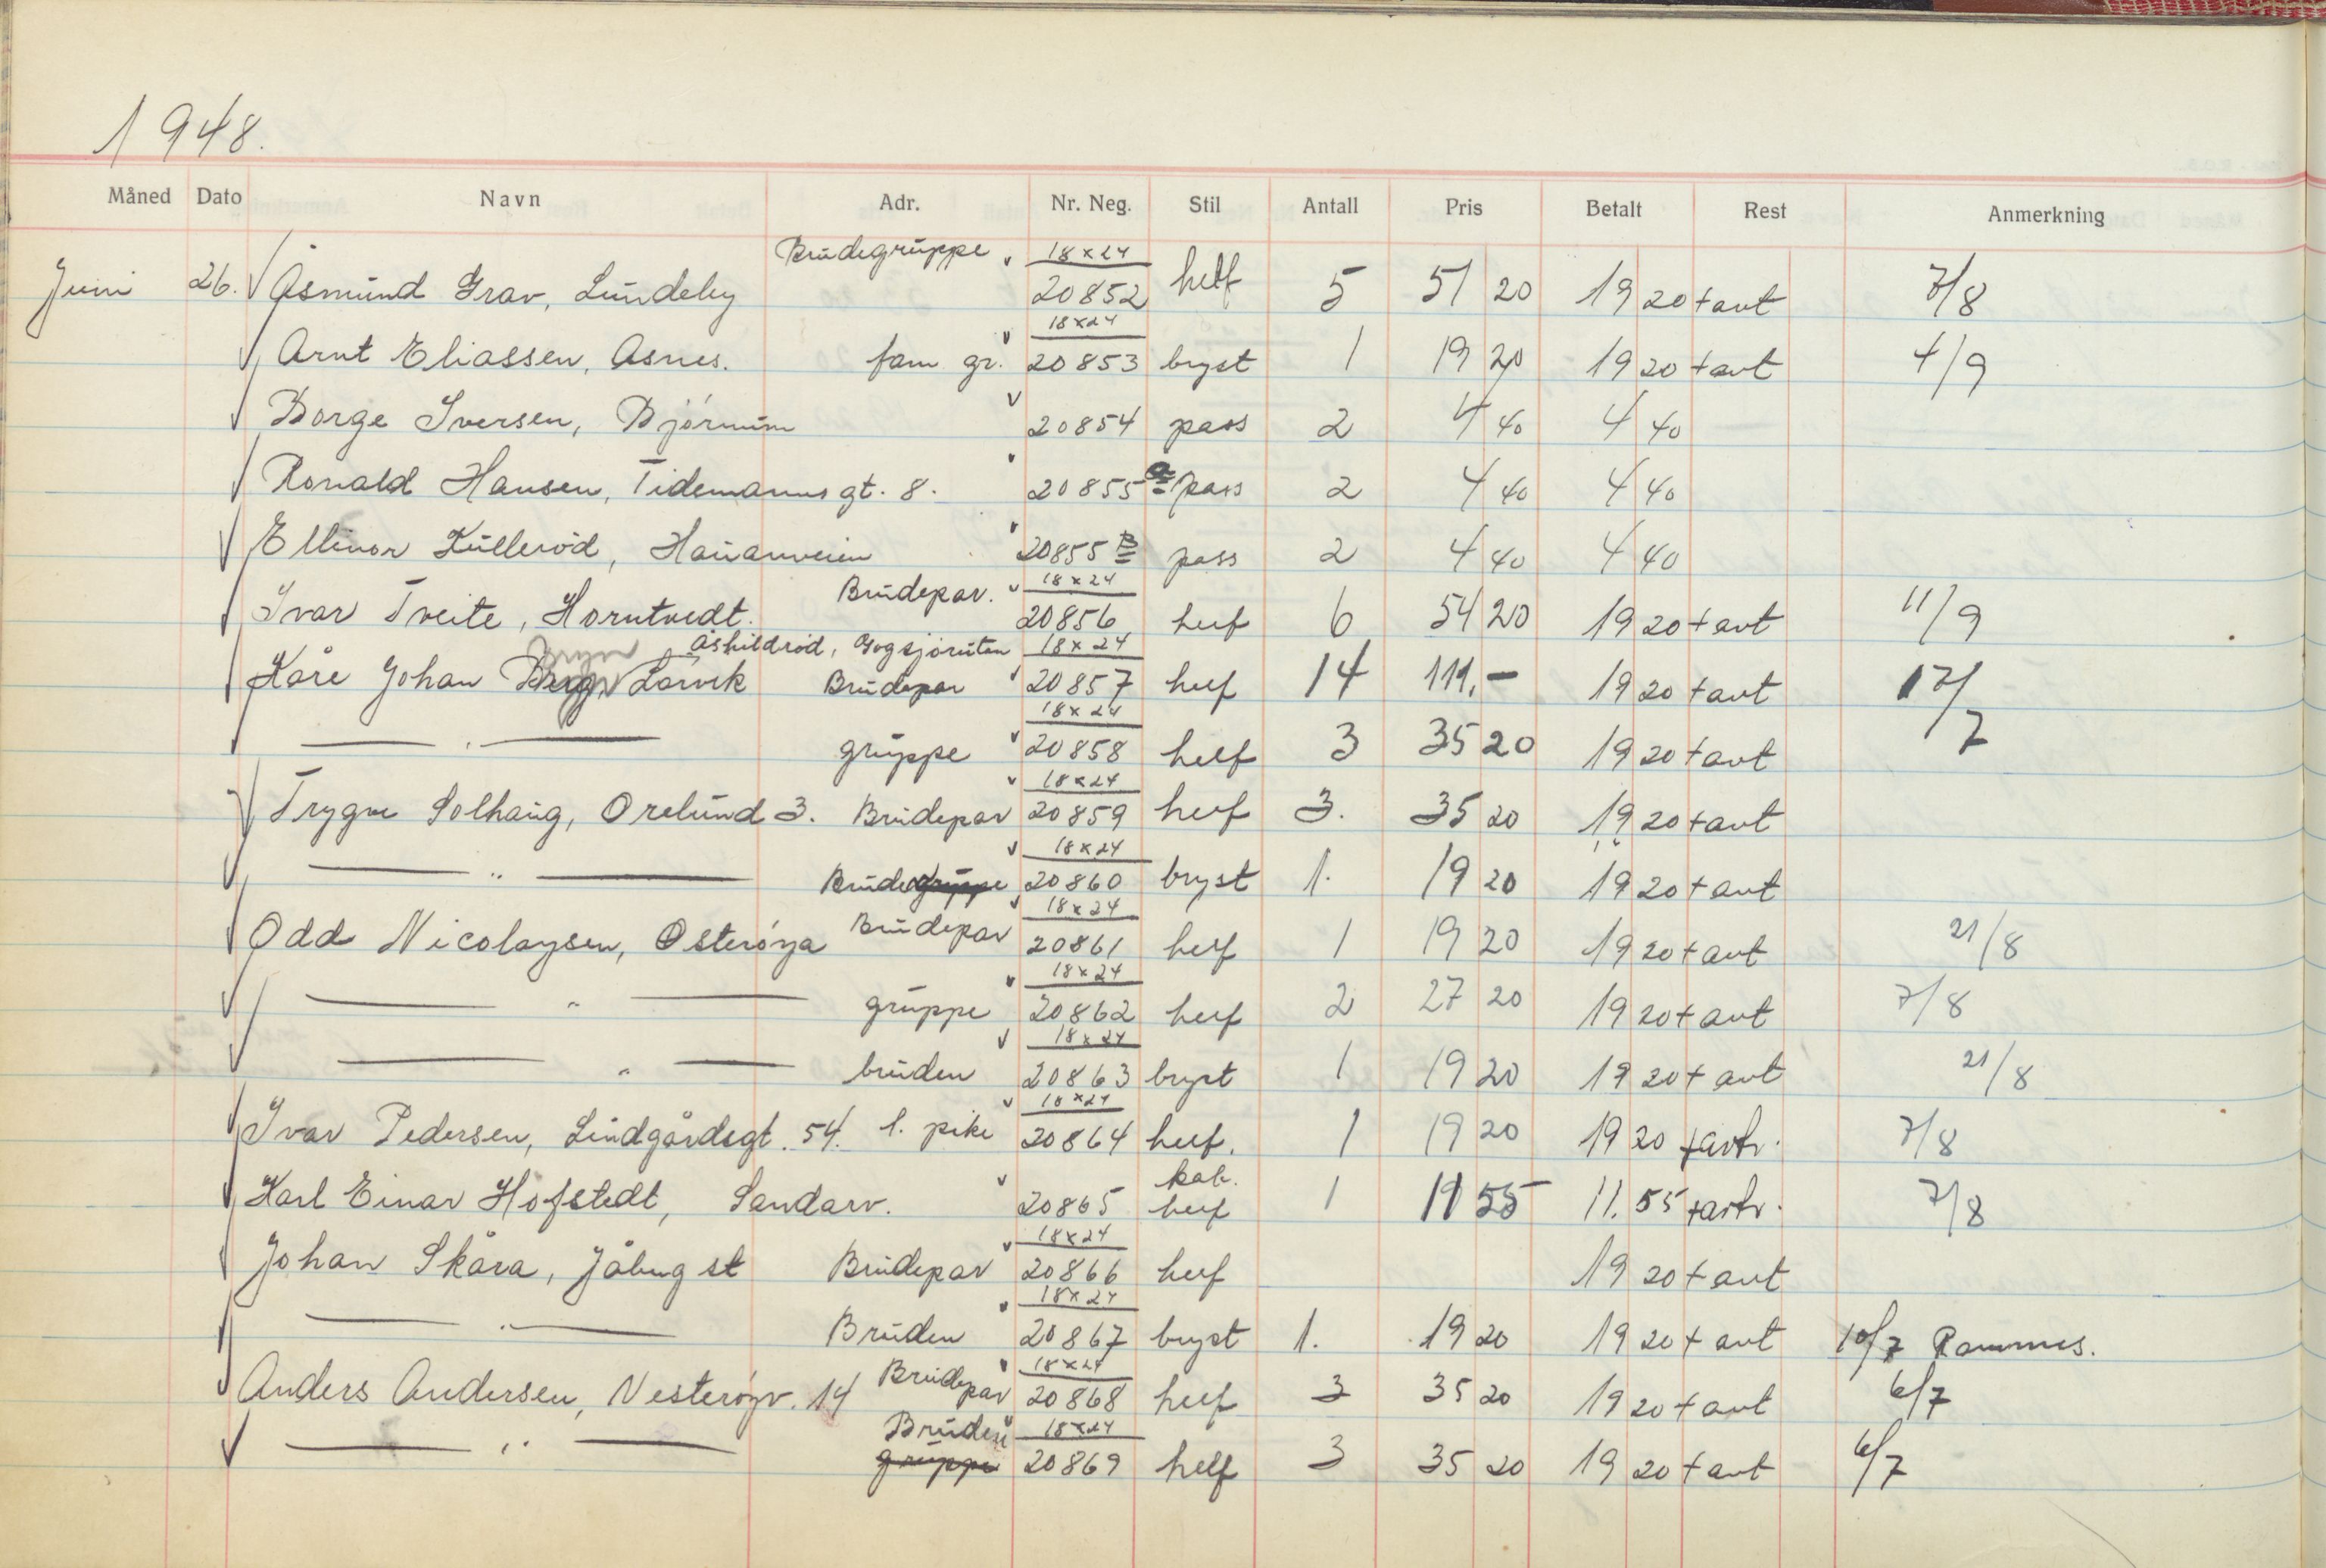 1948.
Måned Dato Navn Adr. Nr. Neg. Stil Antall Pris Betalt Rest Anmerkning
Brudegruppe 18x24
Juni 26. Åsmund Grav, Lundeby 20852 helf 5 51 20 19 20 + avt 7/8
18x24
Arnt Eliassen, Åsnes. fam gr. 20853 bryst 1 19 20 19 20 + avt 4/9
Borge Iversen, Bjørnum 20854 pass 2 4 40 4 40
Ronald Hansen, Tidemanns gt. 8. 20855 a pass 2 4 40 4 40
Ellinor Kullerød, Hauanveien 20855 B pass 2 4 40 4 40
Brudepar. 18x24
Ivar Tveite, Horntvedt. 20856 helf 6 54 20 19 20 + avt 11/9
Åshildrød, Gogsjøruten 18x24
Kåre Johan Larvik Brudepar 20857 helf 14 111,- 19 20 + avt 17/7
18x24
— " — gruppe 20858 helf 3 35 20 19 20 + avt
18x24
Trygve Solhaug, Orelund 3. Brudepar 20859 helf 3. 35 20 19 20 + avt
18x24
— " — Brude gruppe 20860 bryst 1. 19 20 19 20 + avt
18x24
Odd Nicolaysen, Østerøya Brudepar 20861 helf 1 19 20 19 20 + avt 21/8
18x24
— " — gruppe 20862 helf 2 27 20 19 20 + avt 7/8
18x24
— " — bruden 20863 bryst 1 19 20 19 20 + avt 21/8
18x24
Ivar Pedersen, Lindgårdsgt. 54. l. pike 20864 helf. 1 19 20 19 20 + avtr. 7/8
kab.
Karl Einar Hofstedt, Sandarv. 20865 helf 1 11 55 11.55 + avtr. 7/8
18x24
Johan Skåra, Jåberg st Brudepar 20866 helf 19 20 + avt
18x24
— " — Bruden 20867 bryst 1. 19 20 19 20 + avt 10/7 Rammes.
18x24
Anders Andersen, Vesterøyv. 14 Brudepar 20868 helf 3 35 20 19 20 + avt 6/7
Bruden 18x24
— " — gruppe 20869 helf 3 35 20 19 20 + avt 6/7